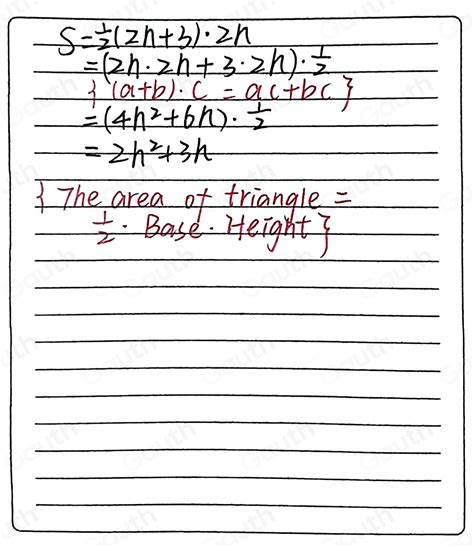 S=½(2n+3)·2n
=(2n·2n+3·2n)·½
{(a+b)·c = ac+bc}
=(4n²+6n)·½
=2n²+3n
{The area of triangle =
½·Base·Height}